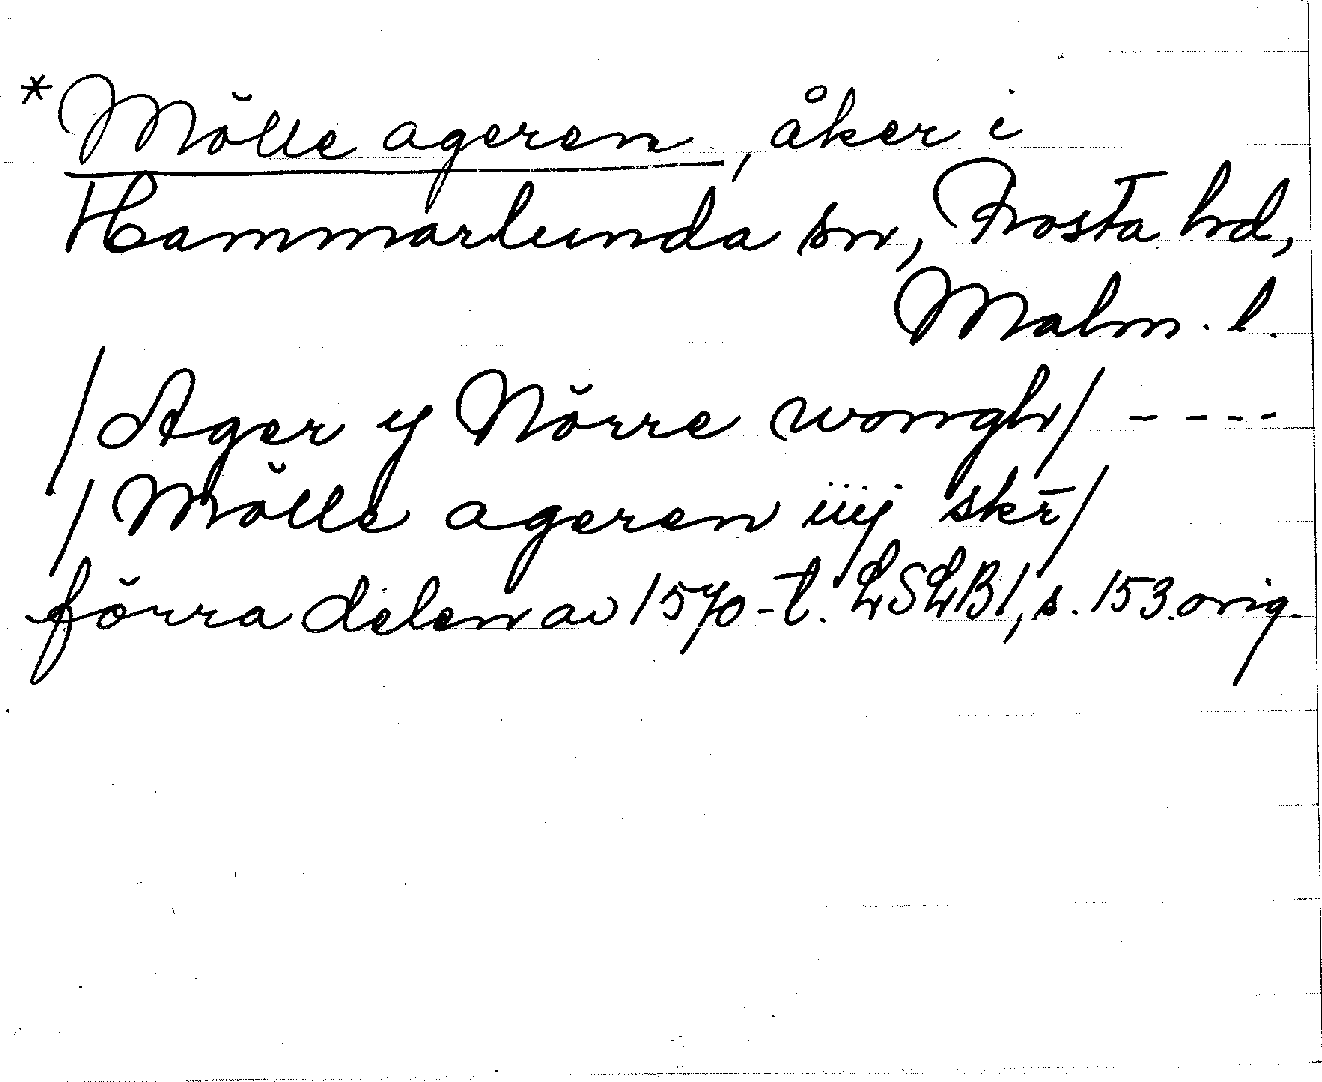 * Mŏlle ageren, åker i
Hammarlunda sn, Frosta hd,
Malm. l.
/Ager y Nŏrre wongh/ ----
/Mŏlle ageren iiij skr̄/
fŏrra delen av 1570-t. LSLB1, s. 153 orig.